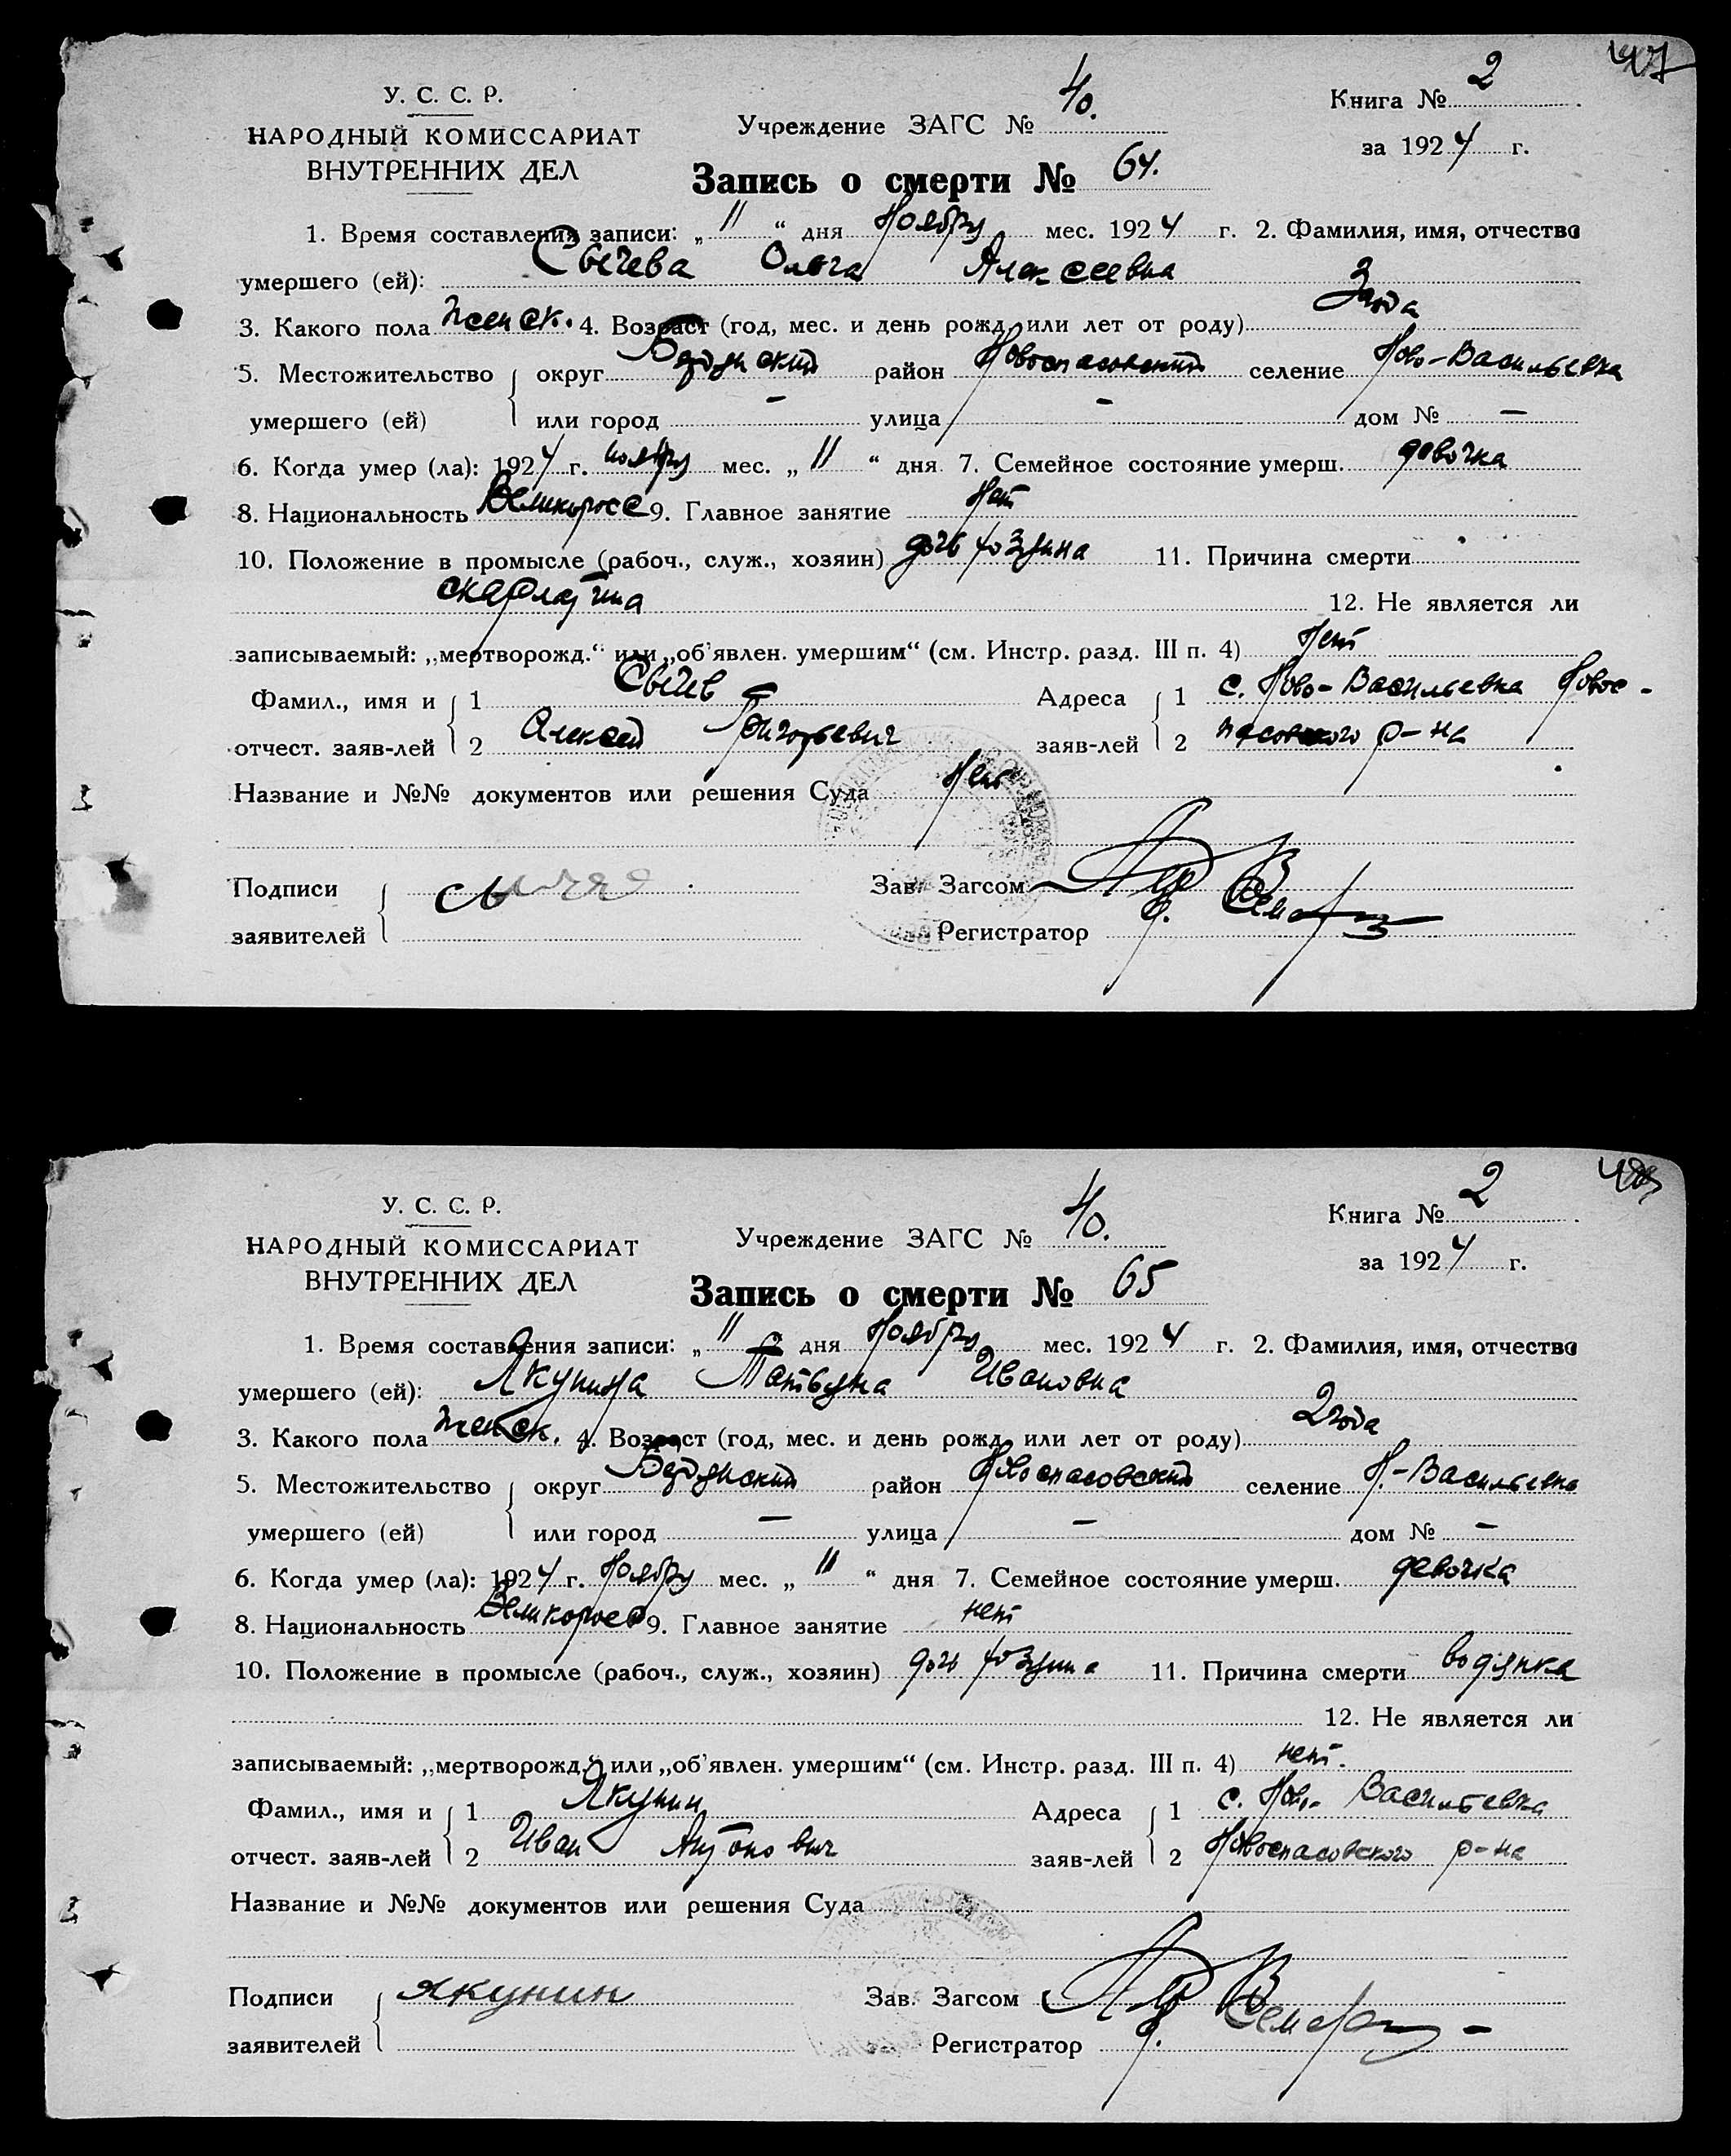 У. С. С. Р.
НАРОДНЫЙ КОМИССАРИАТ
ВНУТРЕННИХ ДЕЛ
Учреждение ЗАГС № 40.
Книга № 2
за 1924 г.
Запись о смерти № 64.
1. Время составления записи: „ 11 “ дня Ноября мес. 1924 г. 2. Фамилия, имя, отчество
умершего (ей): Сычева Ольга Алексеевна
3. Какого пола женск. 4. Возраст (год, мес. и день рожд. или лет от роду) 3 года
5. Местожительство округ Бердянский район Новоспасовский селение Ново-Васильевка
умершего (ей) или город - улица - дом № -
6. Когда умер (ла): 1924 г. ноября мес. „ 11 “ дня 7. Семейное состояние умерш. девочка
8. Национальность Великоросс 9. Главное занятие Нет
10. Положение в промысле (рабоч., служ., хозяин) дочь хозяина 11. Причина смерти
скарлатина 12. Не является ли
записываемый: „мертворожд.“ или „об'явлен. умершим“ (см. Инстр. разд. III п. 4) Нет
Фамил., имя и 1 Сычев Адреса 1 с. Ново-Васильевка Новос-
отчест. заяв-лей 2 Алексей Григорьевич заяв-лей 2 пасовского р-на
Название и №№ документов или решения Суда Нет
Подписи Зав. Загсом
заявителей Регистратор
У. С. С. Р.
НАРОДНЫЙ КОМИССАРИАТ
ВНУТРЕННИХ ДЕЛ
Учреждение ЗАГС № 40.
Книга № 2
за 1924 г.
Запись о смерти № 65
1. Время составления записи: „ 11 “ дня Ноября мес. 1924 г. 2. Фамилия, имя, отчество
умершего (ей): Якунина Татьяна Ивановна
3. Какого пола женск. 4. Возраст (год, мес. и день рожд. или лет от роду) 2 года
5. Местожительство округ Бердянский район Новоспасовский селение Н.-Васильевка
умершего (ей) или город - улица - дом № -
6. Когда умер (ла): 1924 г. Ноября мес. „ 11 “ дня 7. Семейное состояние умерш. девочка
8. Национальность Великоросс 9. Главное занятие нет
10. Положение в промысле (рабоч., служ., хозяин) дочь хозяина 11. Причина смерти водянка
12. Не является ли
записываемый: „мертворожд.“ или „об'явлен. умершим“ (см. Инстр. разд. III п. 4) нет.
Фамил., имя и 1 Якунин Адреса 1 с. Ново-Васильевка
отчест. заяв-лей 2 Иван Антонович заяв-лей 2 Новоспасовского р-на
Название и №№ документов или решения Суда
Подписи Якунин Зав. Загсом
заявителей Регистратор